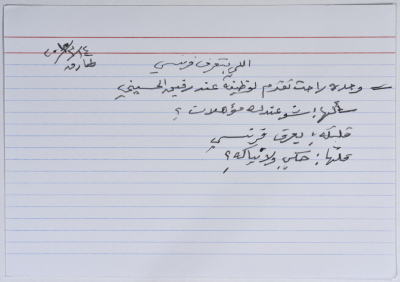 ٢٠١٣/٢/١٤
طارق
اللي بتعرف فرنسي
وحدة راحت تقدم لوظيفة عند رفيق الحسيني
سألها: شو عندك مؤهلات؟
قلتله: بعرف فرنسي
قلها: حكي ولا نياكة؟